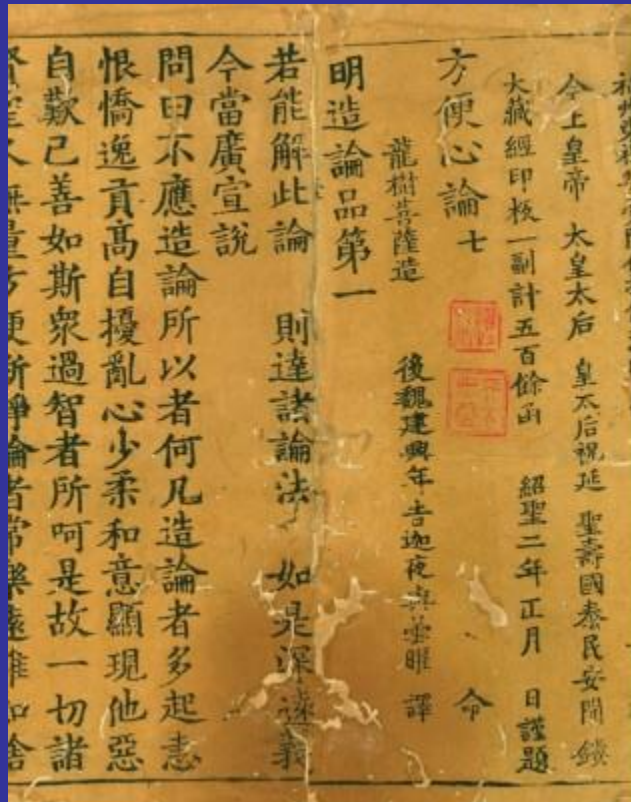 今上皇帝 太皇太后 皇太后祝延 聖壽國泰民安開鏤
大藏經印板一副計五百餘函 紹聖二年正月 日謹題
方便心論七 命
龍樹菩薩造 後魏建興年吉迦夜與曇曜 譯
明造論品第一
若能解此論 則達諸論法 如是深遠義
今當廣宣說
問曰不應造論所以者何凡造論者多起恚
恨憍逸貢高自擾亂心少柔和意顯現他惡
自歎己善如斯衆過智者所呵是故一切諸
無量方便斷諍論者常樂遠離如捨